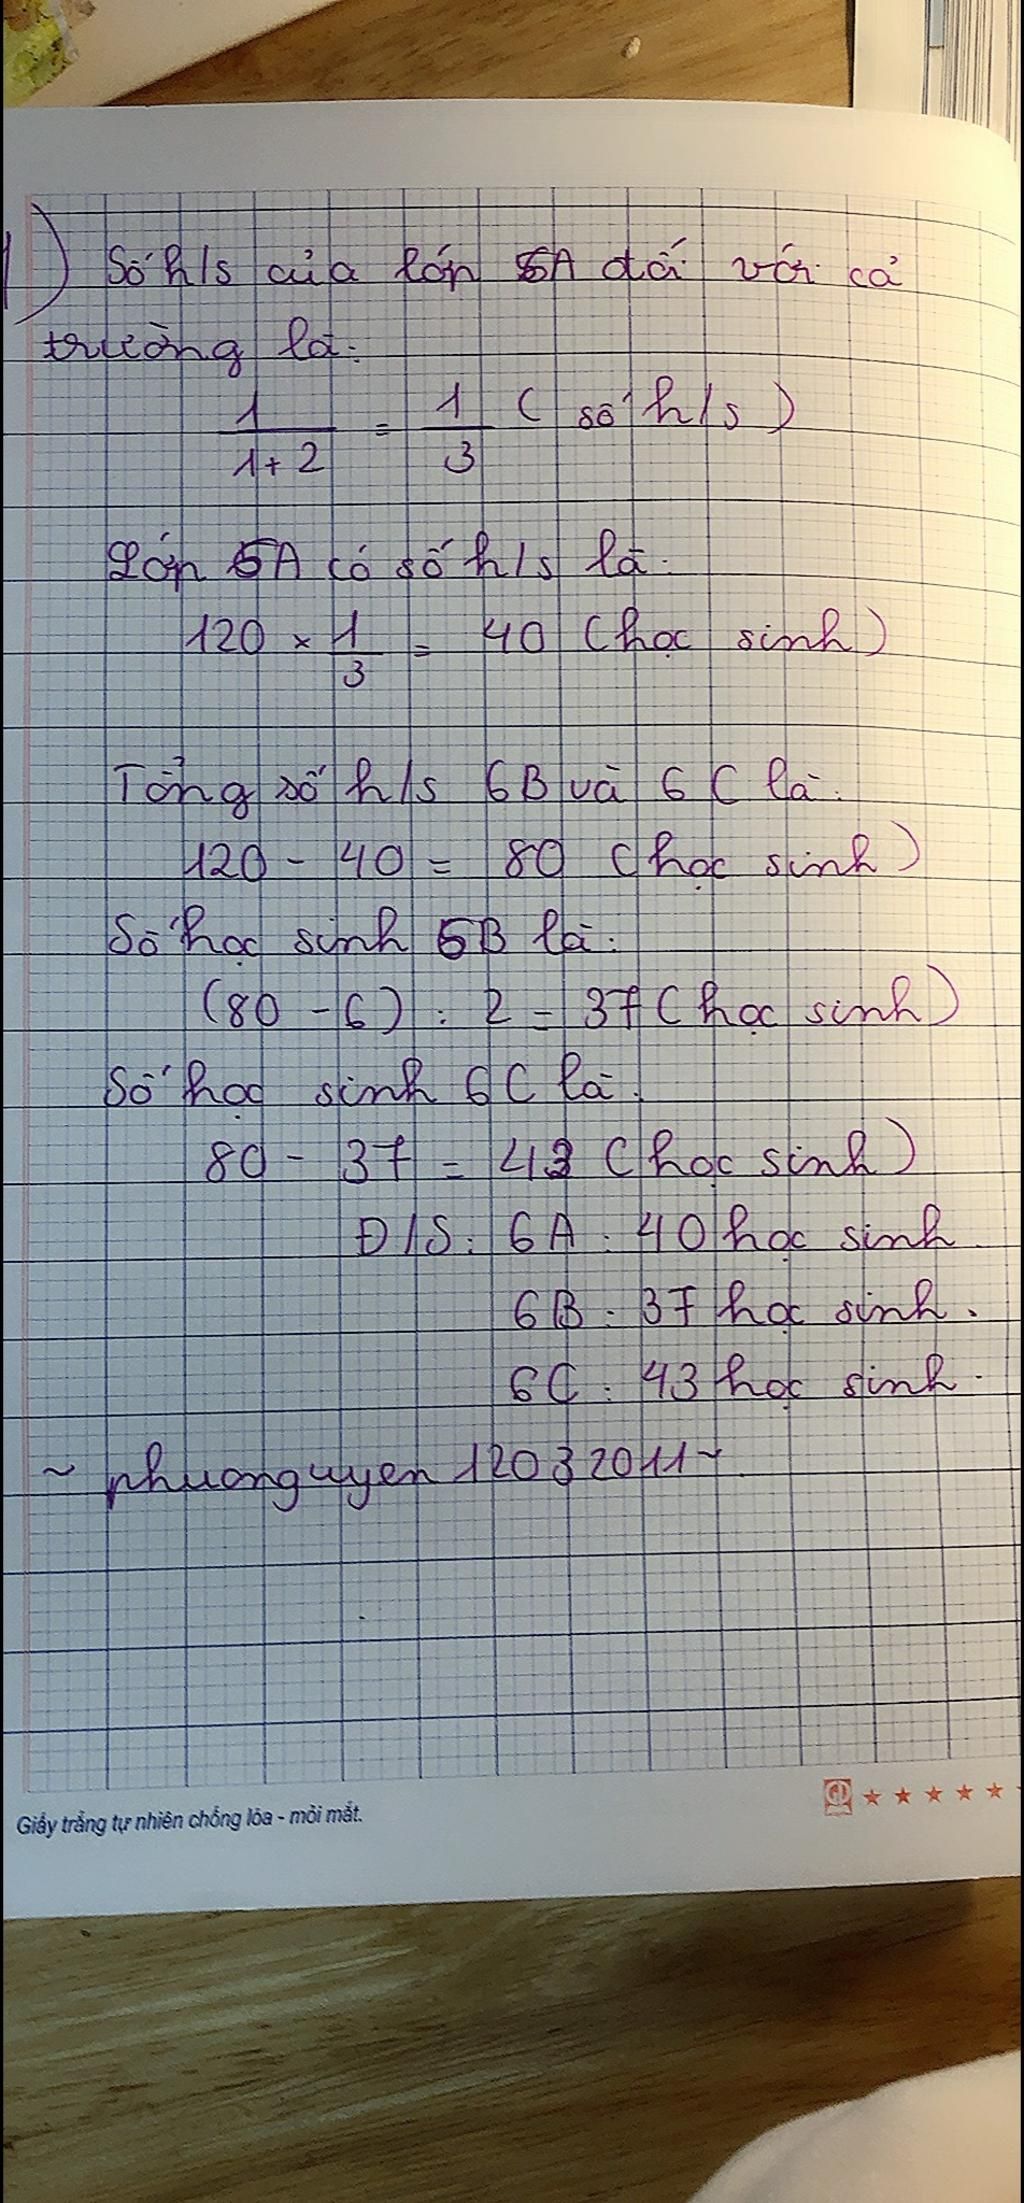 1) Số h/s của lớp 6A đối với cả
trường là:
1/(1+2) = 1/3 (số h/s)
Lớp 6A có số h/s là:
120 × 1/3 = 40 (học sinh)
Tổng số h/s 6B và 6C là:
120 - 40 = 80 (học sinh)
Số học sinh 6B là:
(80 - 6) : 2 = 37 (học sinh)
Số học sinh 6C là:
80 - 37 = 43 (học sinh)
Đ/S: 6A: 40 học sinh
6B: 37 học sinh.
6C: 43 học sinh.
~ phuonguyen 12032011 ~
Giấy trắng tự nhiên chống lóa - mỏi mắt.